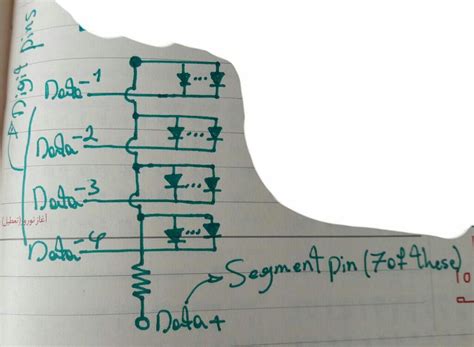 Digit pins
Data-1
Data-2
Data-3
Data-4
آغاز نوروز (تعطیل)
Segment pin (7 of these)
Data+